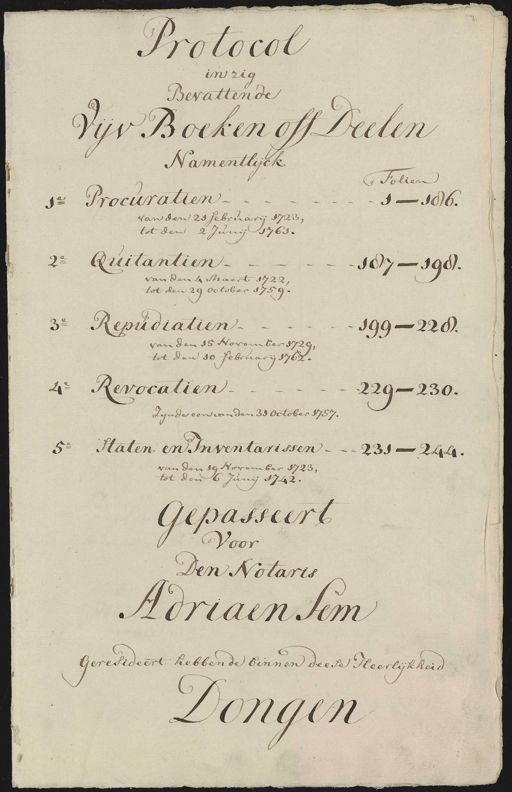 Protocol
in zig
Bevattende
Vijv Boeken off Deelen
Namentlijck
Folien
1e Procuratien - - - - - - - - 1 — 186.
van den 21 februarij 1723,
tot den 2 Junij 1761.
2e Quitantien - - - - - - 187 — 198.
van den 4 Maert 1722,
tot den 29 october 1759.
3e Repudiatien - - - - - 199 — 228.
van den 15 November 1729,
tot den 10 februarij 1762.
4e Revocatien - - - - - - 229 — 230.
Zijnde een van den 31 October 1757.
5e Staten en Inventarissen - - - 231 — 244.
van den 19 November 1723,
tot den 6 Junij 1742.
Gepasseert
Voor
Den Notaris
Adriaen Sem
Geresideert hebbende binnen deese Heerlijkheid
Dongen